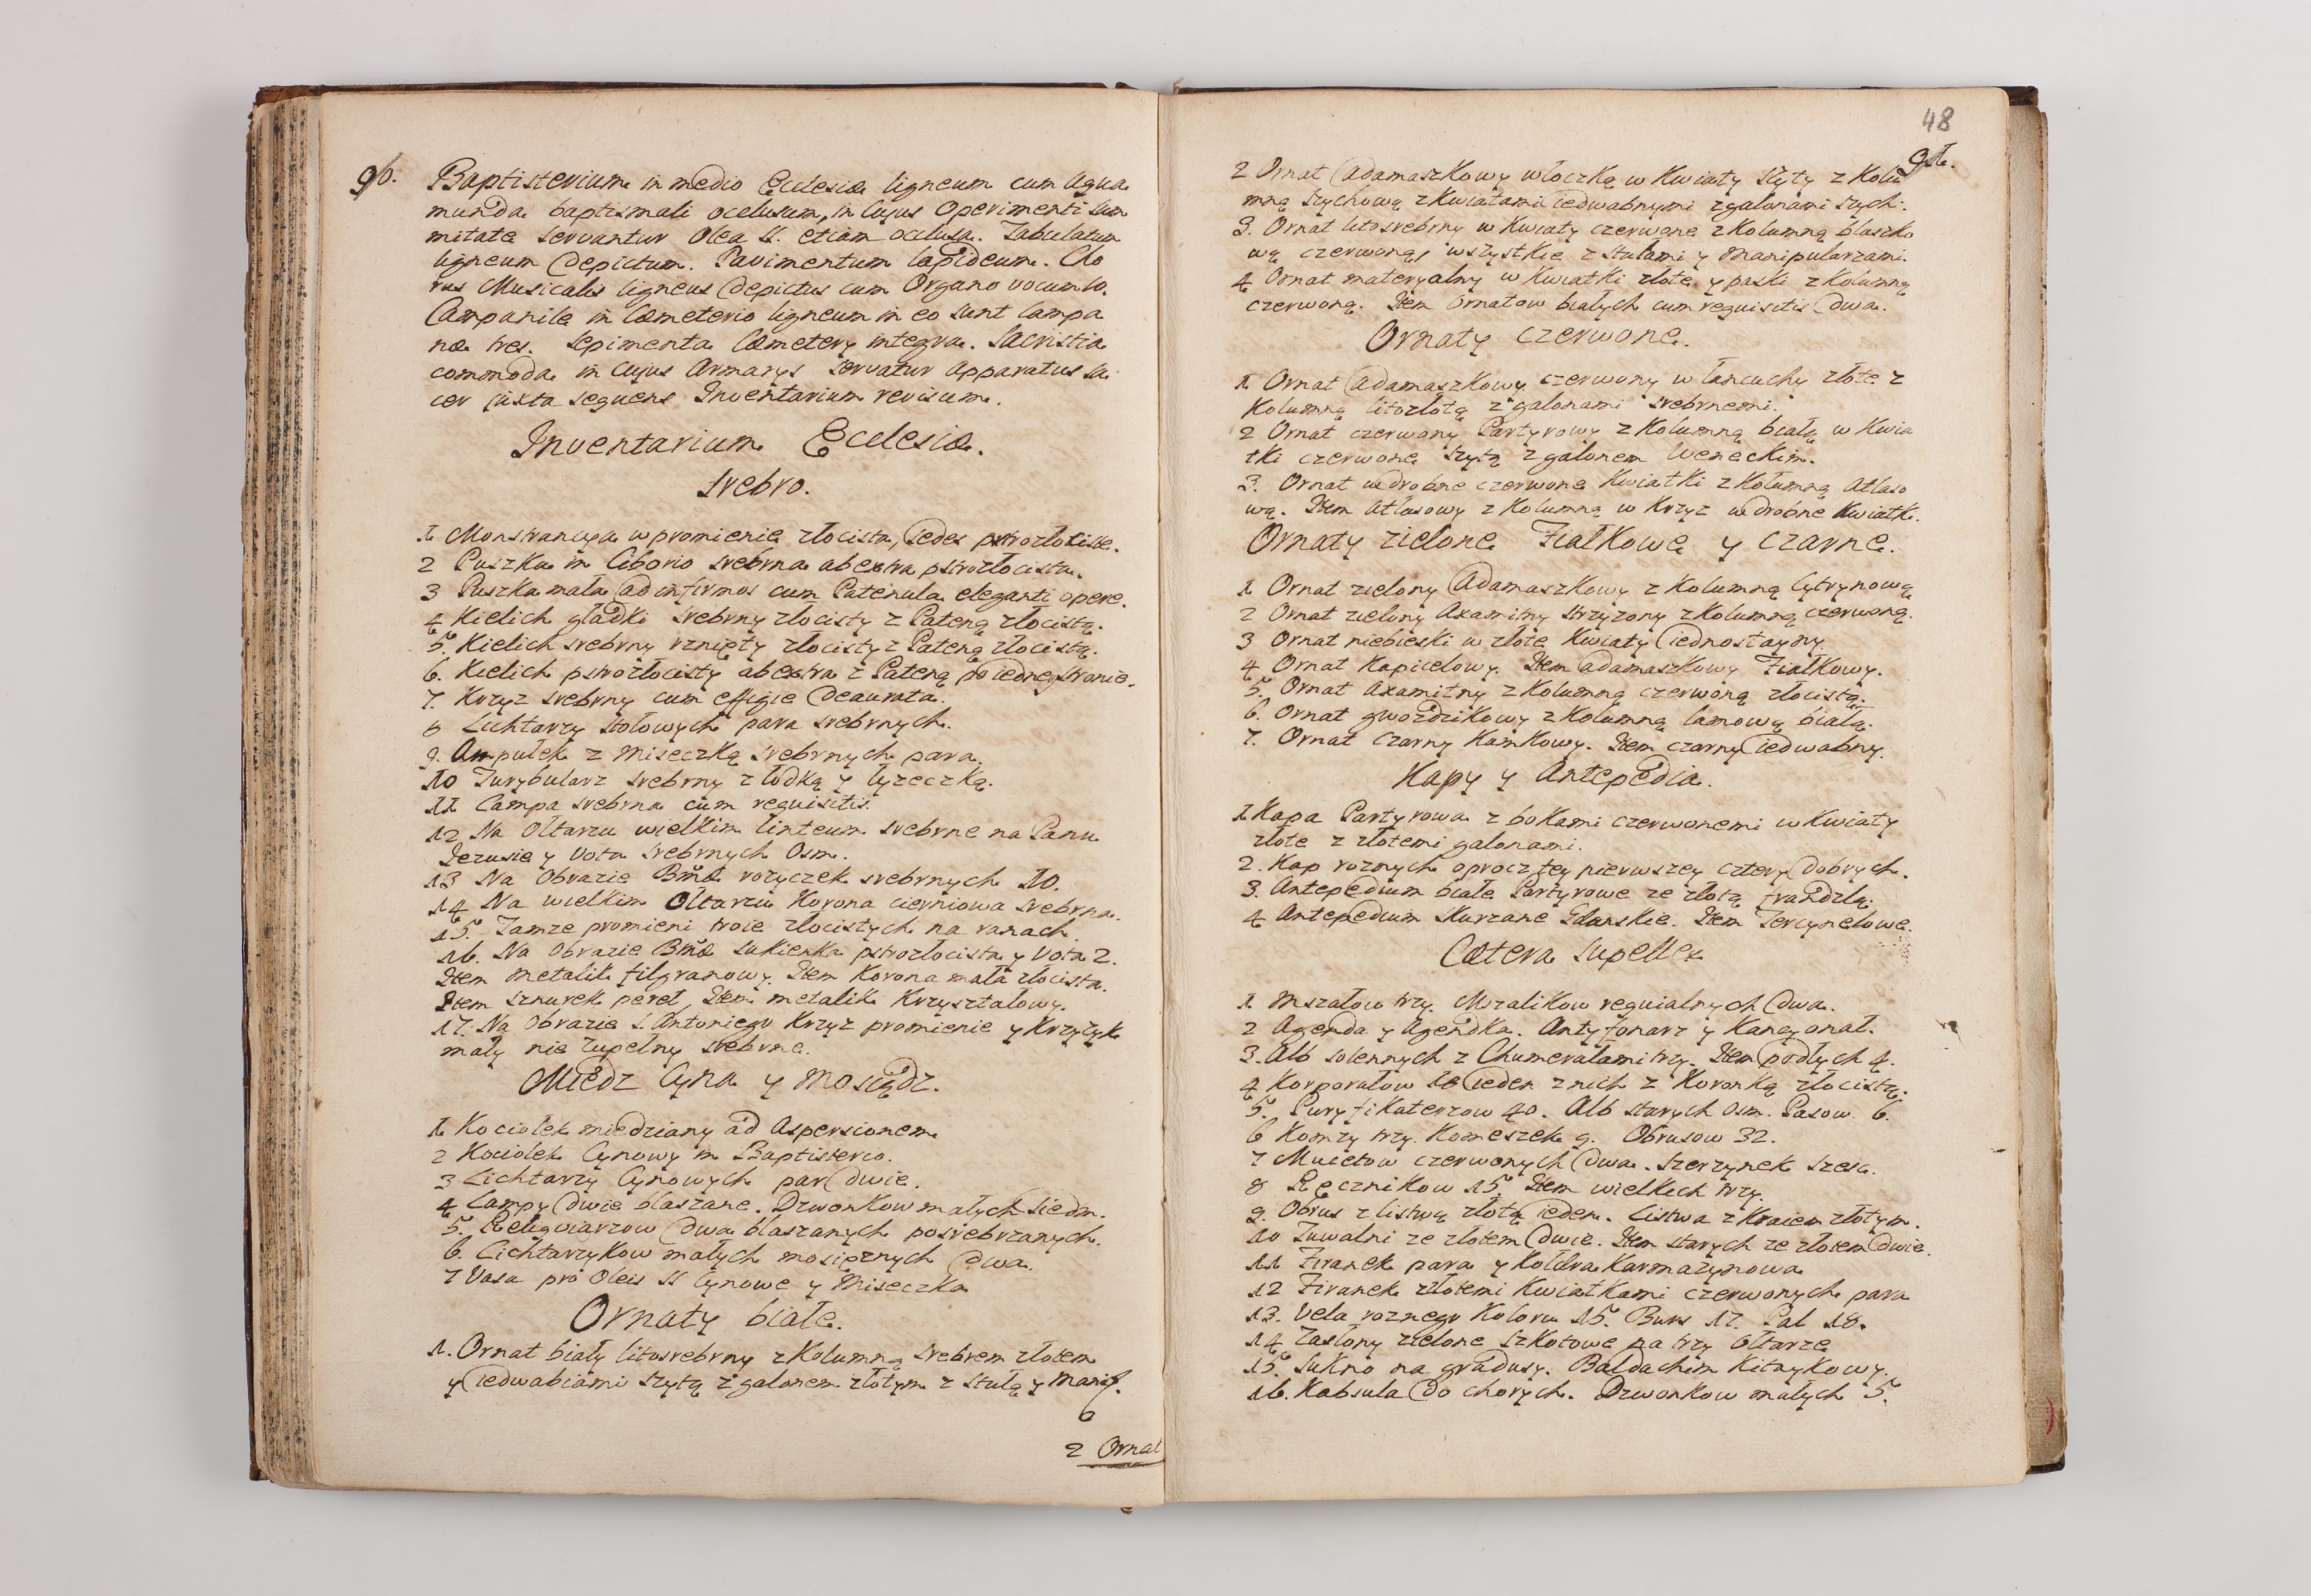 96.
Baptisterium in medio Ecclesiæ ligneum cum Aqua
munda baptismali oclusum, in cujus Operimenti sum
mitate servantur Olea SS. etiam oclusa. Tabulatum
ligneum depictum. Pavimentum lapideum. Cho
rus Musicalis ligneus depictus cum Organo vocum 10.
Campanile in Cæmeterio ligneum in eo sunt Campa
næ tres. Sepimenta Cæmetery integra. Sacristia
commoda in cujus Armarys servatur Apparatus sa
cer juxta sequens Inventarium revisum.
Inventarium Ecclesiæ.
Srebro.
1 Monstrancya w promienie złocista, Sedes pstrozłotiste.
2 Puszka in Ciborio srebrna abextra pstrozłocista.
3 Puszka mała ad infirmos cum Patenula eleganti opere.
4 Kielich gładki srebrny złocisty z Pateną złocistą.
5. Kielich srebrny rznięty złocisty z Pateną złocistą.
6. Kielich pstrozłocisty abextra z Pateną po iedney stronie.
7. Krzyz srebrny cum effigie deaurata.
8 Lichtarzy stołowych para srebrnych.
9. Ampułek z miseczką srebrnych para.
10 Turybularz srebrny z łodką y łyzeczką.
11 Lampa srebrna cum requisitis.
12 Na Ołtarzu wielkim linteum srebrne na Panu
Jezusie y Vota srebrnych Osm.
13 Na Obrazie Bmæ rozyczek srebrnych 10.
14 Na wielkim Ołtarzu Korona cierniowa srebrna.
15. Tamze promieni troie złocistych na ranach.
16. Na Obrazie Bmæ sukienka pstrozłocista y Vota 2.
Item metalik filgranowy. Item Korona mała złocista.
Item sznurek pereł, Item metalik Krzysztalowy.
17. Na Obrazie S. Antoniego Krzyz promienie y Krzyzyk
mały nie zupełny srebrne.
Miedz Cyna y mosiądz.
1 Kociołek miedziany ad Aspersionem
2 Kociołek Cynowy in Baptisterio.
3 Lichtarzy Cynowych par dwie.
4 Lampy dwie blaszane. Dzwonkow małych siedm.
5. Reliquiarzow dwa blaszanych posrebrzanych.
6. Lichtarzykow małych mosięznych dwa.
7 Vasa pro Oleis SS Cynowe y Miseczka
Ornaty białe.
1. Ornat biały litosrebrny z Kolumną srebrem złotem
y iedwabiami szytą z galonem złotym z stułą y manip.
2 Ornat
48
97.
2 Ornat adamaszkowy włoczką w Kwiaty szyty z Kolu
mną szychową z Kwiatami iedwabnymi z galonami szych:
3. Ornat litosrebrny w Kwiaty czerwone z Kolumną blaszko
wą czerwoną, wszystkie z stułami y manipularzami.
4 Ornat materyalny w Kwiatki złote y paski z Kolumną
czerwoną. Item Ornatow białych cum requisitis dwa.
Ornaty czerwone.
1 Ornat adamaszkowy czerwony w łancuchy złote z
Kolumną litozłotą z galonami srebrnemi.
2 Ornat czerwony Partyrowy z Kolumną białą w Kwia
tki czerwone szytą z galonem weneckim.
3. Ornat w drobne czerwone Kwiatki z Kolumną Atlaso
wą. Item Atlasowy z Kolumną w Krzyz w drobne Kwiatk.
Ornaty zielone Fiałkowe y czarne.
1 Ornat zielony Adamaszkowy z Kolumną Cytrynową
2 Ornat zielony Axamitny strzyzony z Kolumną czerwoną.
3 Ornat niebieski w złote Kwiaty iednostayny
4 Ornat Kapicelowy. Item adamaszkowy Fiałkowy.
5. Ornat Axamitny z Kolumną czerwoną złocistą.
6. Ornat gwozdzikowy z Kolumną lamową białą.
7. Ornat Czarny Kamkowy. Item czarny iedwabny.
Kapy y Antepedia.
1 Kapa Partyrowa z bokami czerwonemi w Kwiaty
złote z złotemi galonami.
2. Kap roznych oprocz tey pierwszey cztery dobrych.
3. Antepedium białe Partyrowe ze złotą frandzlą.
4 Antepedium Kurzane Gdanskie. Item Tercynelowe.
Cætera Supellex
1 Mszałow trzy. Mszalikow requialnych dwa.
2 Agenda y Agendka. Antyfonarz y Kancyonał.
3. Alb solennych z Chumerałami trzy. Item podłych 4.
4 Korporałow 18 ieden z nich z Koronką złocistą.
5. Puryfikaterzow 40. Alb starych Osm. Pasow 6.
6 Komzy trzy. Komeszek 9. Obrusow 32.
7 Mucetow czerwonych dwa. Szerzynek szesc.
8 Ręcznikow 15. Item wielkich trzy.
9. Obrus z listwą złotą ieden. Listwa z Kraiem złotym.
10 Tuwalni ze złotem dwie. Item starych ze złotem dwie.
11 Firanek para y Kołdra Karmazynowa
12 Firanek złotemi Kwiatkami czerwonych para
13. Vela roznego Koloru 15. Burs 17. Pal 18.
14 Zasłony zielone szkotowe na trzy Ołtarze
15. Sukno na gradusy. Baldachim Kitaykowy.
16. Kabsula do chorych. Dzwonkow małych 5.